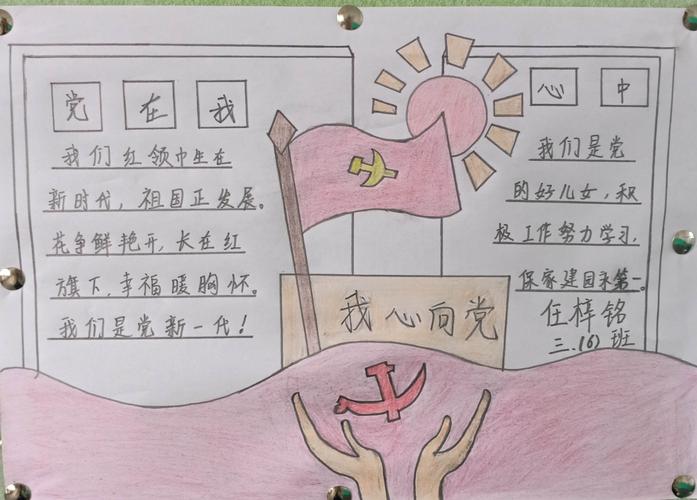 党 在 我
我们红领巾生在
新时代，祖国正发展。
花争鲜艳开，长在红
旗下，幸福暖胸怀。
我们是党新一代！
心 中
我们是党
的好儿女，积
极工作努力学习，
保家建国我第一。
任梓铭
三.(6) 班
我心向党